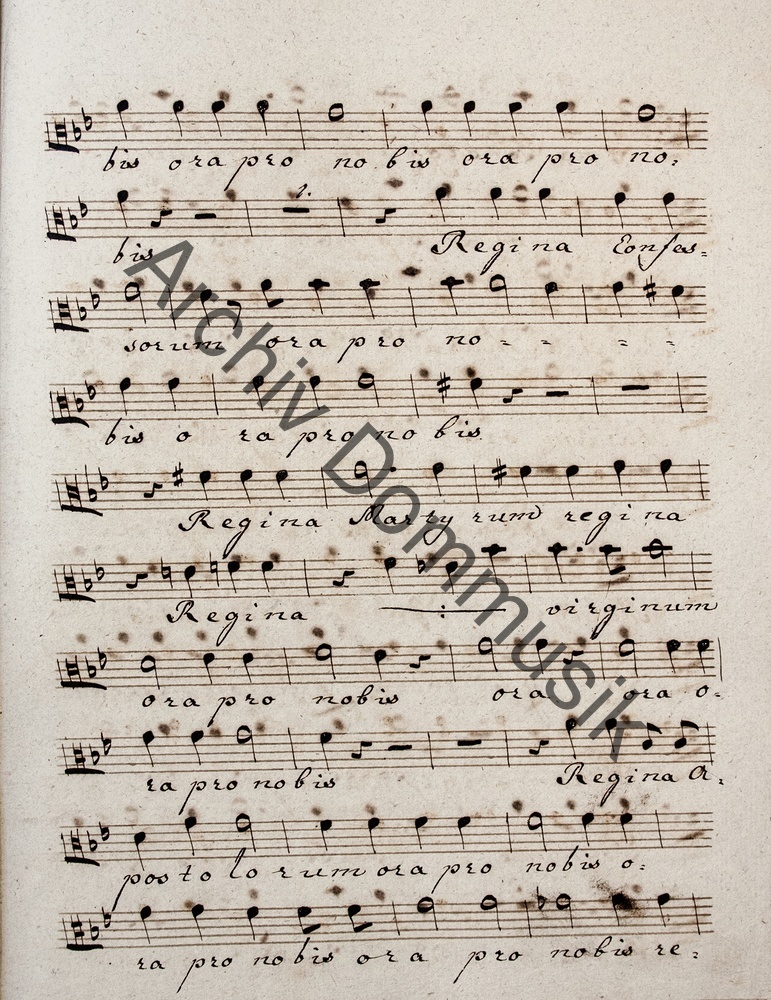 bis ora pro no bis ora pro no:
2.
bis Regina Confes=
sorum ora pro no = = = =
bis o ra pro no bis
Regina Martyrum regina
Regina —:— virginum
ora pro nobis ora ora o=
ra pro nobis Regina A=
postolorum ora pro nobis o:
ra pro nobis ora pro nobis re:
Archiv Dommusik